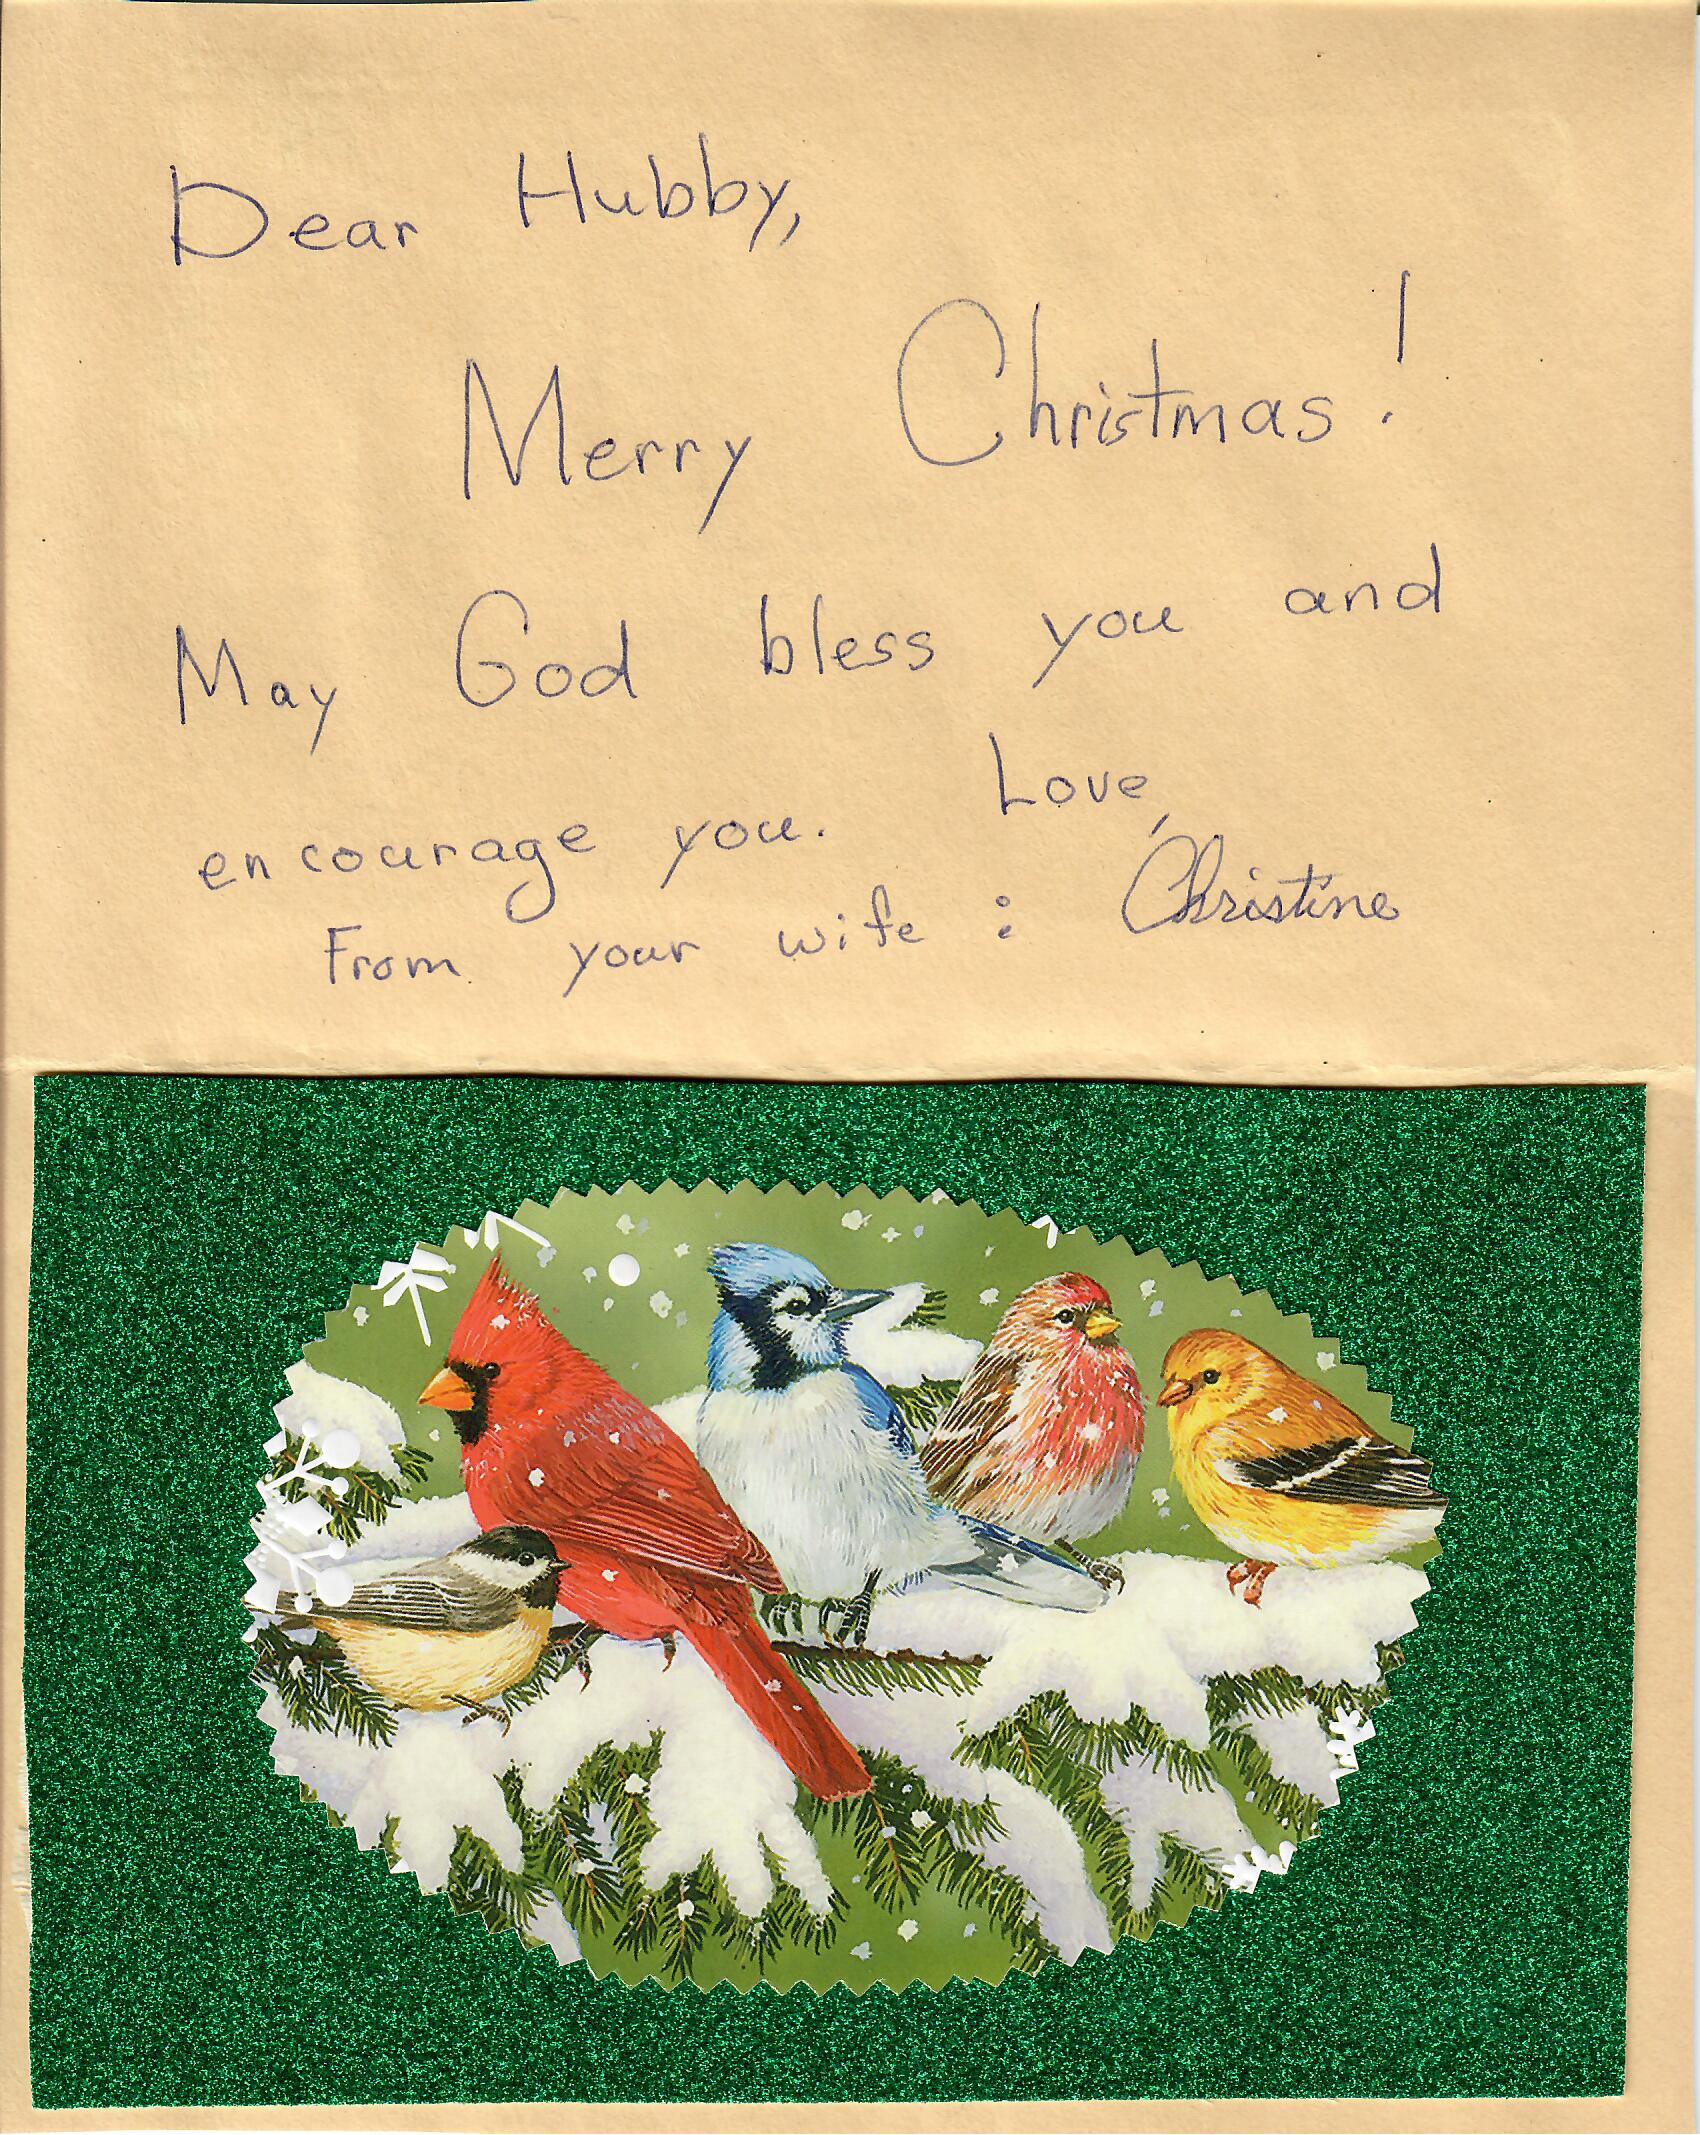 Dear Hubby,
Merry Christmas!
May God bless you and
encourage you. Love,
From your wife : Christine